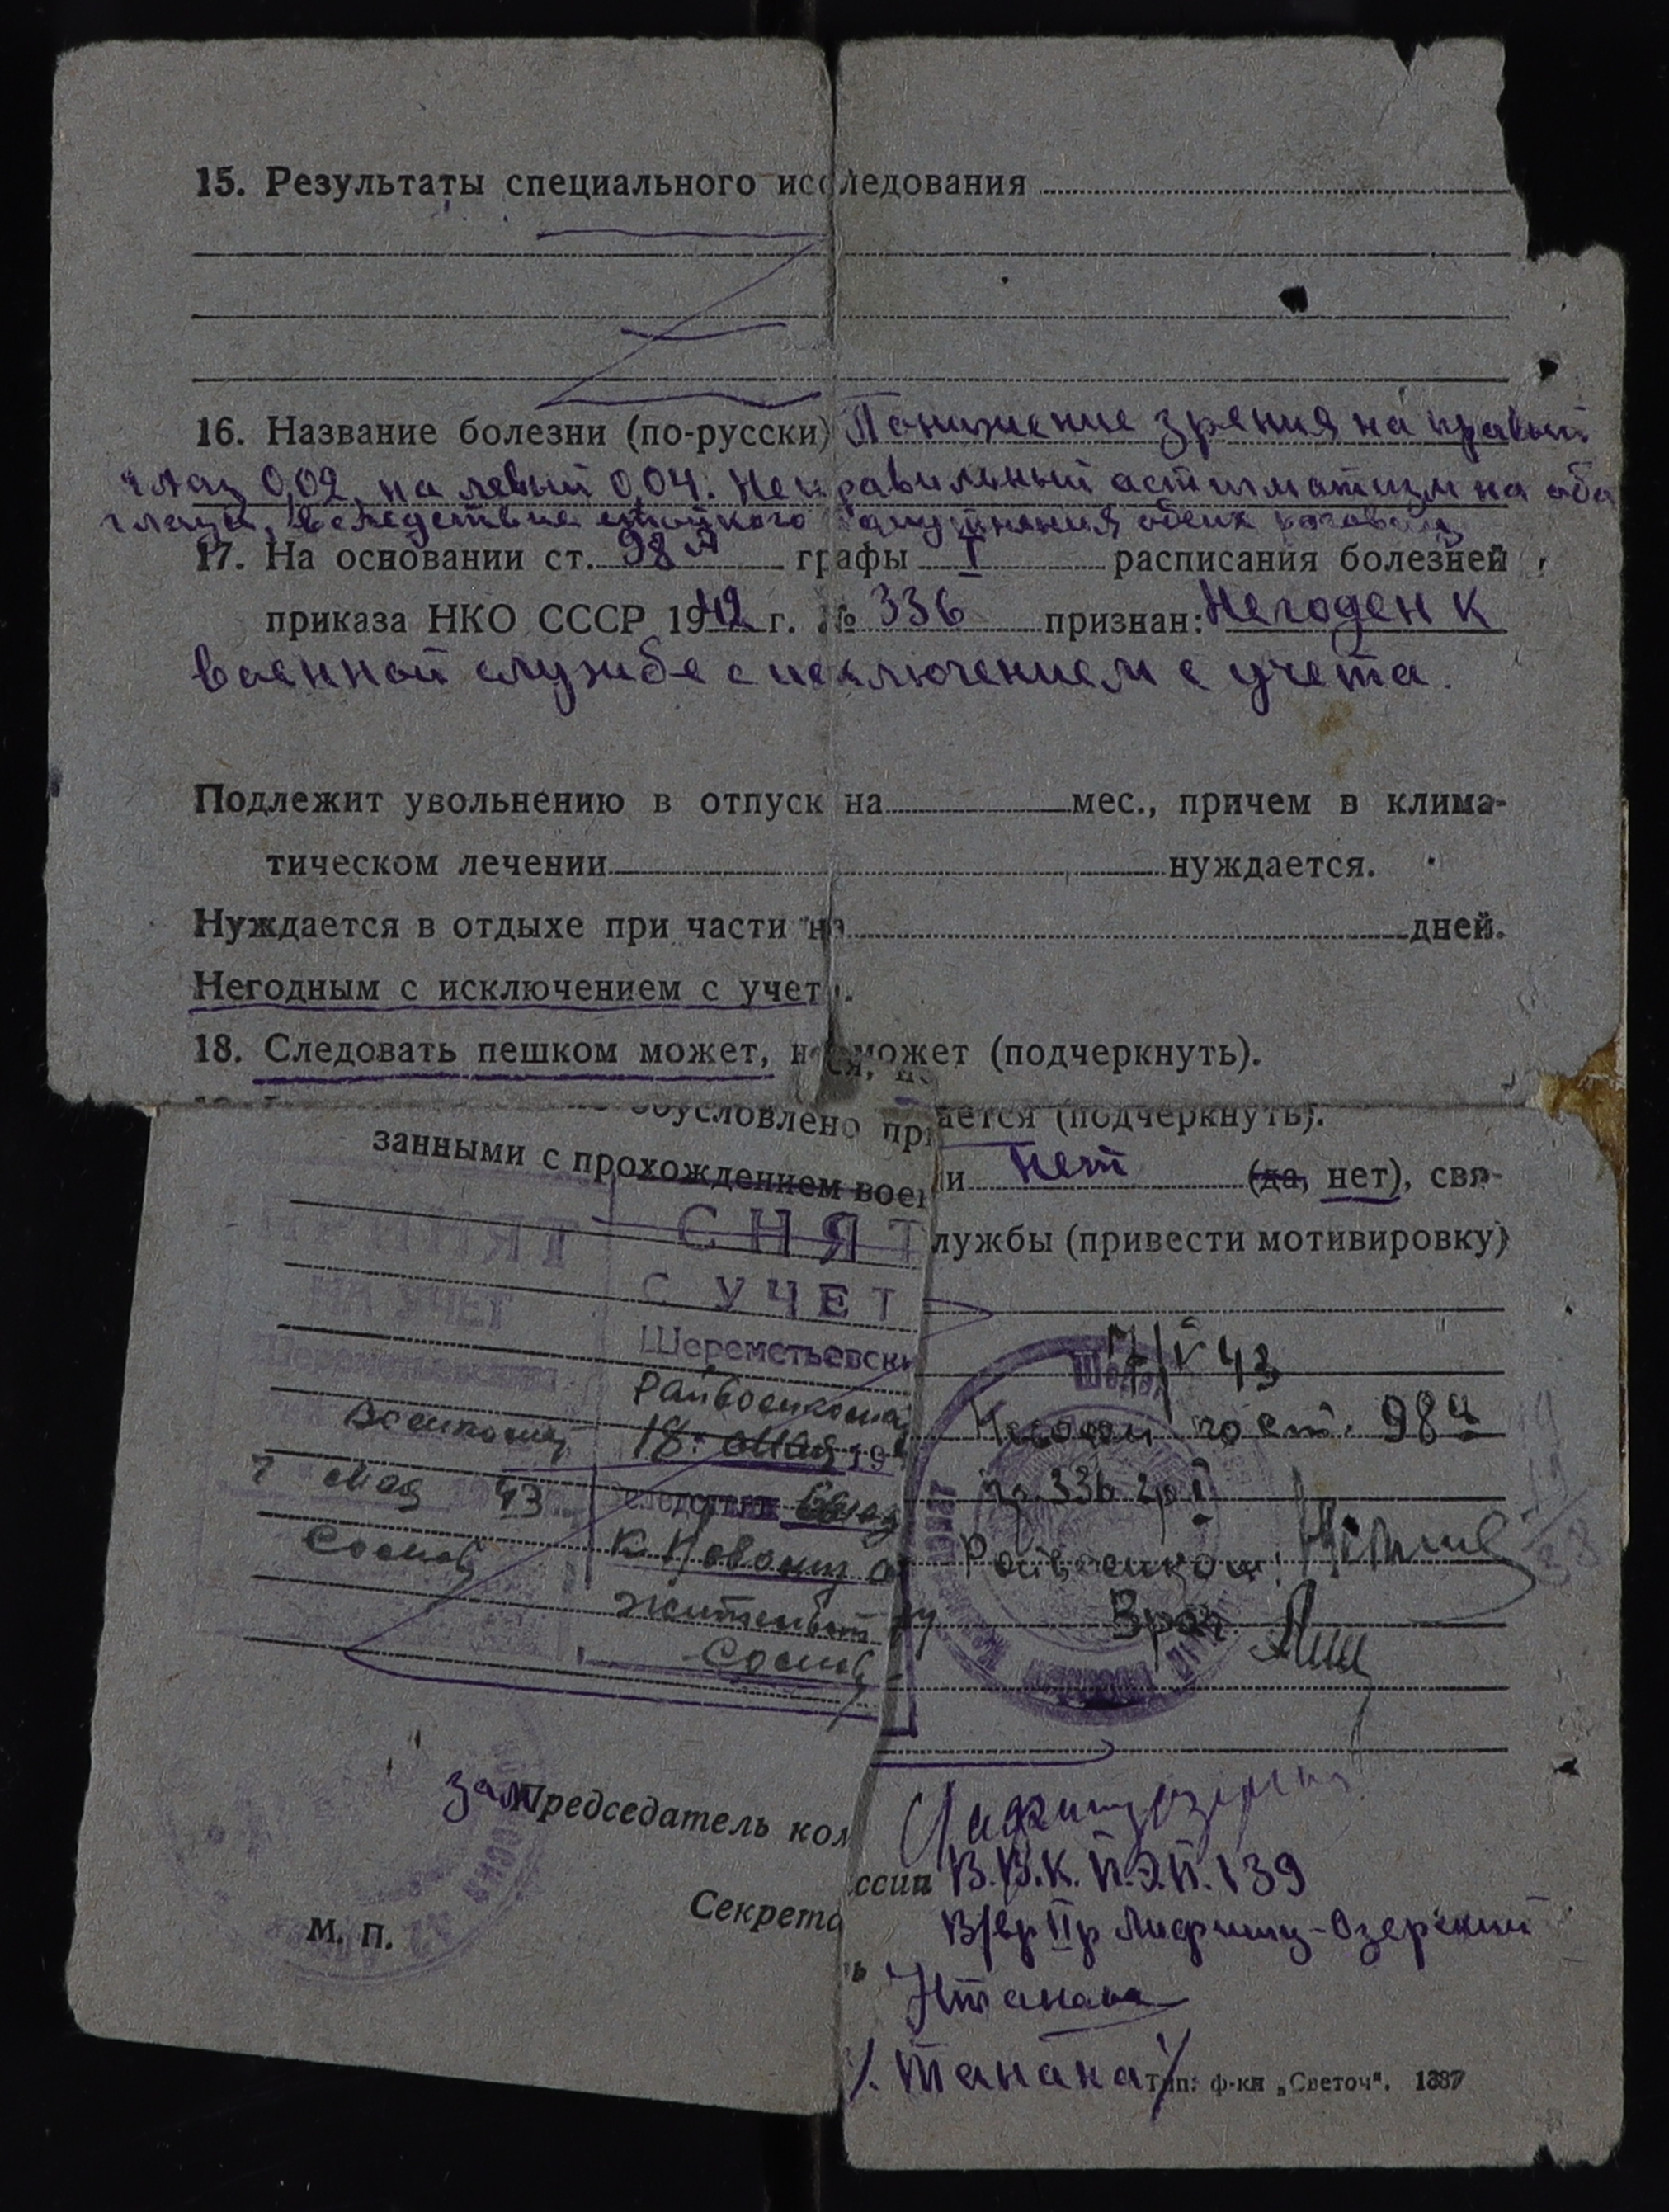 15. Результаты специального исследования
16. Название болезни (по-русски) Понижение зрения на правый
глаз 0,02, на левый 0,04. Неправильный астигматизм на оба
глаза, вследствие стойкого помутнения обеих роговиц
17. На основании ст. 98 А графы I расписания болезней
приказа НКО СССР 1942 г. № 336 признан: Негоден к
военной службе с исключением с учета.
Подлежит увольнению в отпуск на мес., причем в клима-
тическом лечении нуждается.
Нуждается в отдыхе при части на дней.
Негодным с исключением с учет
18. Следовать пешком может, не может (подчеркнуть).
ся, н
обусловлено при
ается (подчеркнуть).
занными с прохождением воен
и нет (да, нет), свя-
лужбы (привести мотивировку)
ПРИНЯТ
НА УЧЕТ
военкомат
7 мая 43
СНЯТ
С УЧЕТ
Шереметьевски
Райвоенкомат
18 мая 19
К. Новому
жительст ву
7/V 43
Негоден по ст. 98 а
пр. 336 гр I
Райвоенком
Врач
зам Председатель ком
ссии В.В.К. П.Э.П. 139
В/вр II р Лифшиц-Озерский
Секрета
ь
М. П.
/. Танана /
Тип. ф-ки „Светоч". 1387